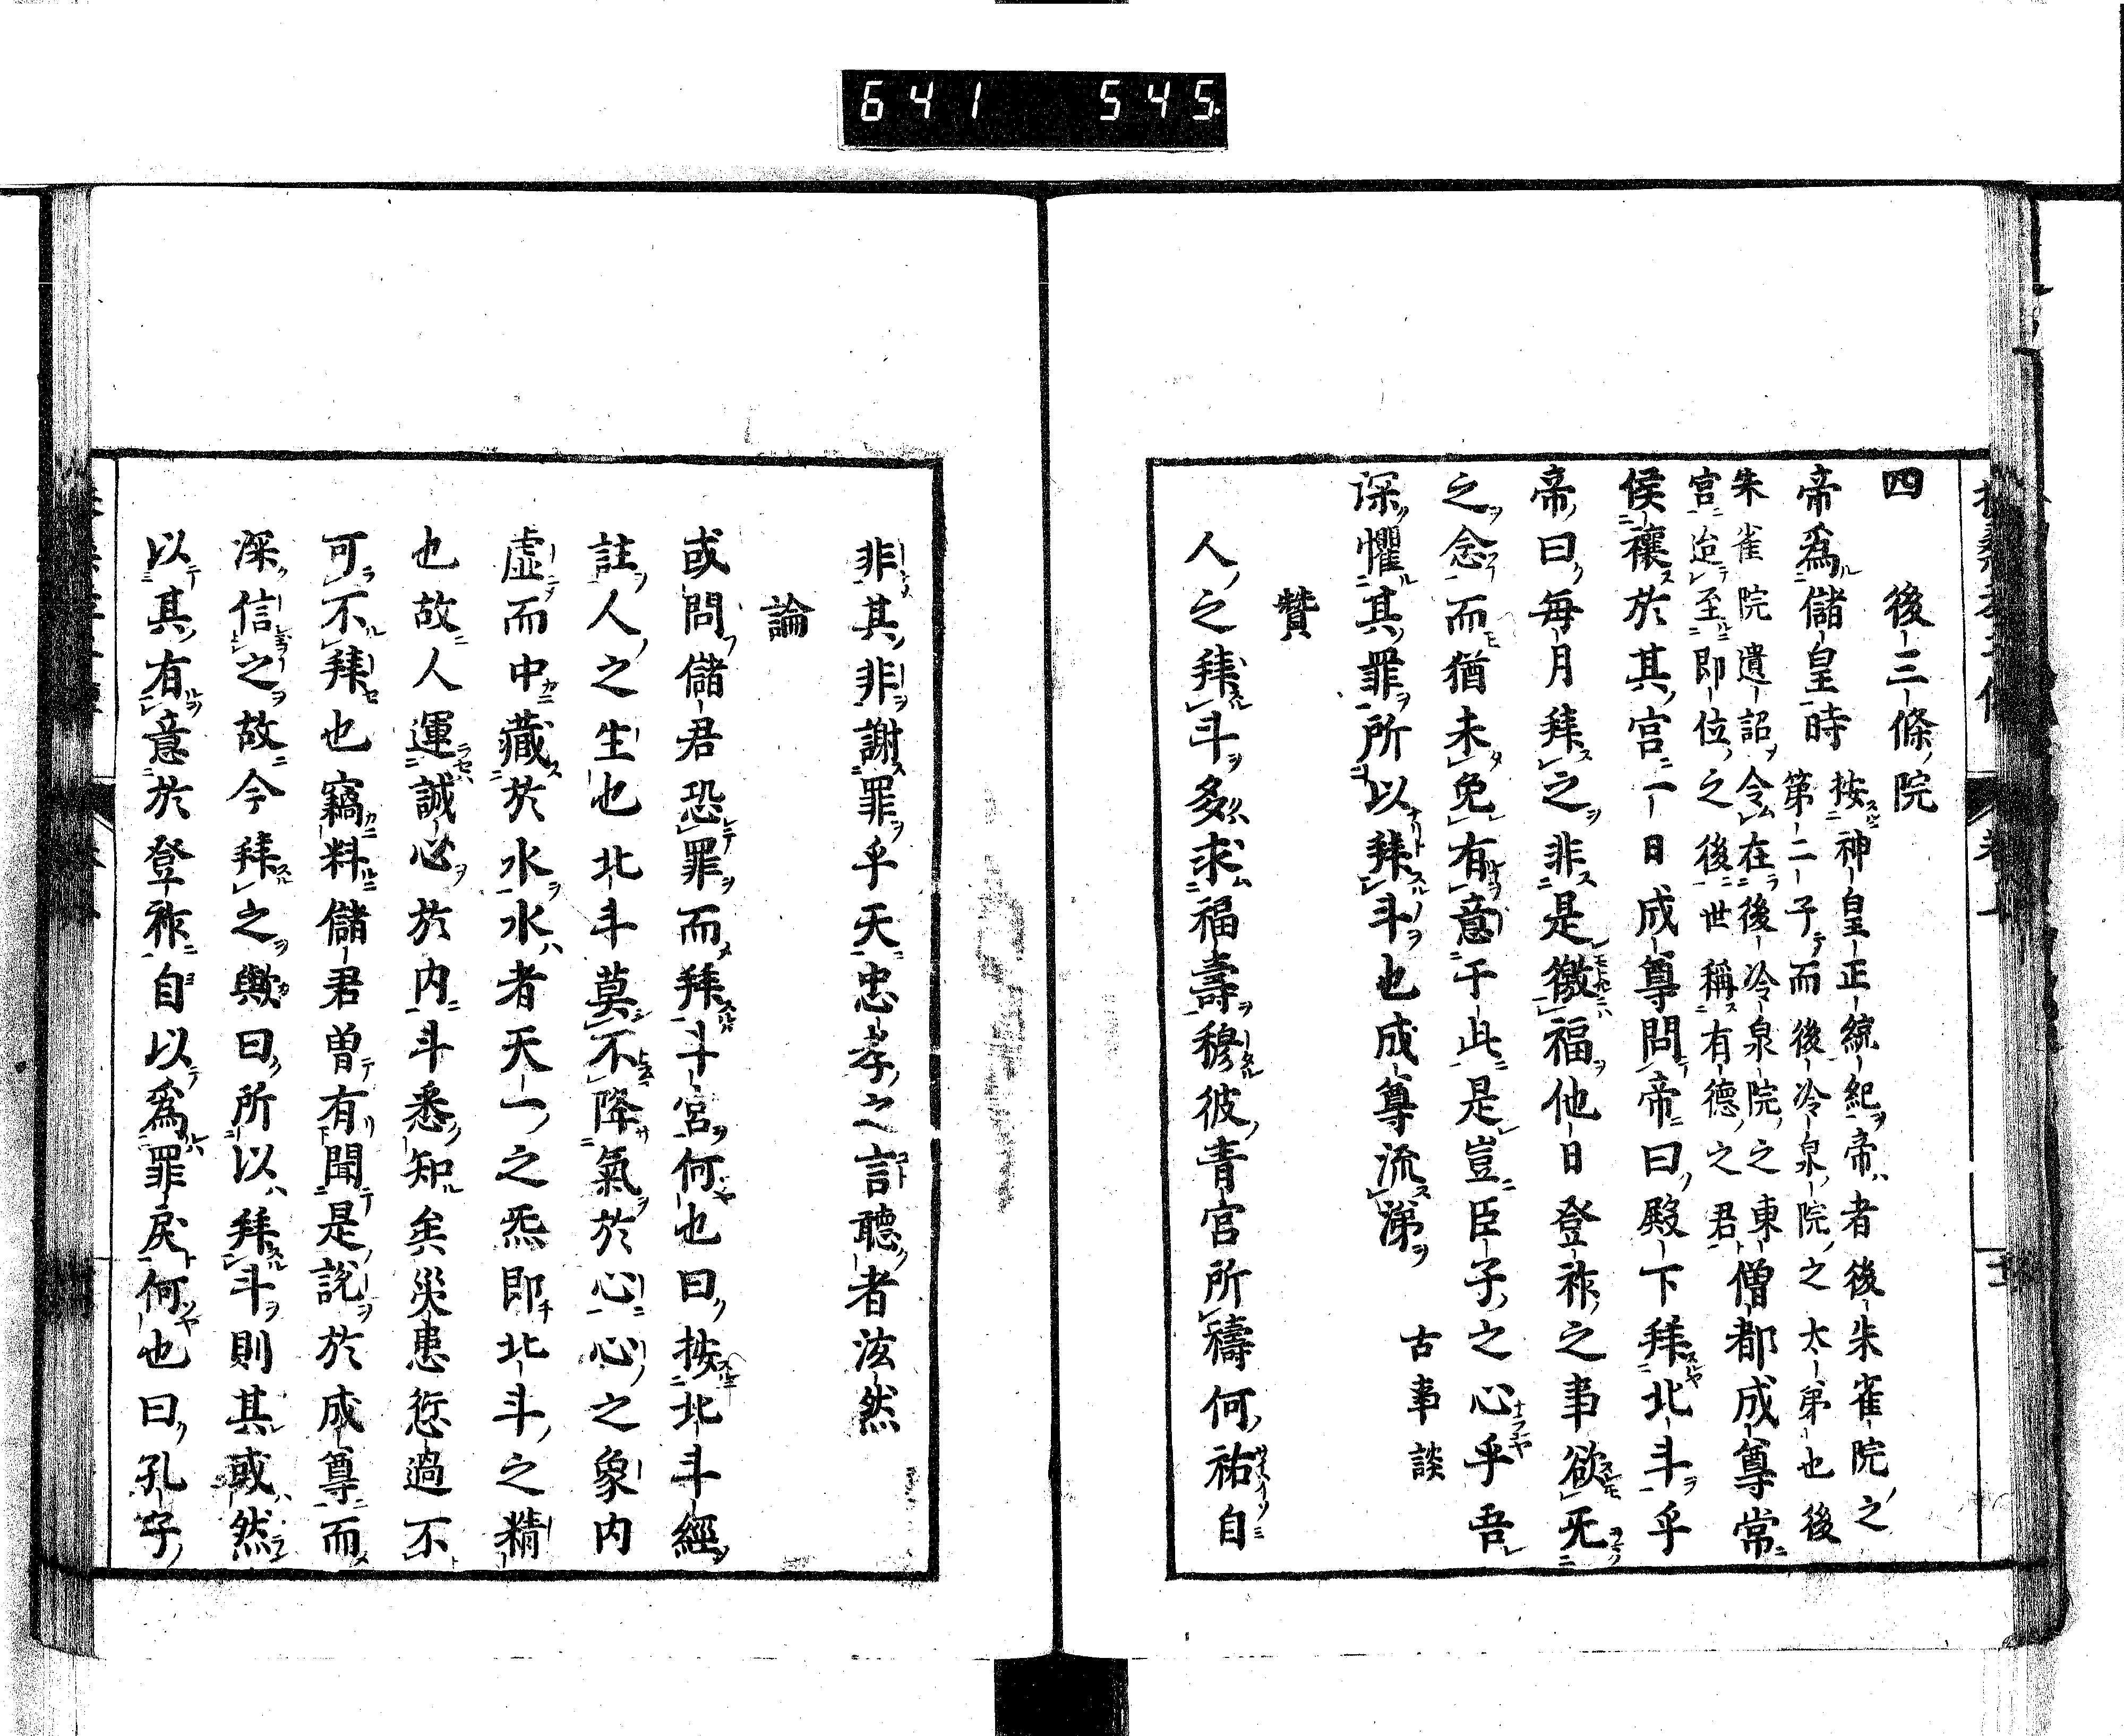 641 545
四 後三條院
帝爲儲皇時 按神皇正統紀帝者後朱雀院之
第二子而後冷泉院之太弟也後
朱雀院遺詔令在後冷泉院之東
宮迨至即位之後世稱有德之君 僧都成尊常
侯禳於其宮一日成尊問帝曰殿下拜北斗乎
帝曰每月拜之非是徼福他日登祚之事欲旡
之念而猶未免有意于此是豈臣子之心乎吾
深懼其罪所以拜斗也成尊流涕 古事談
贊
人之拜斗多求福壽穆彼青宮所禱何祐自
非其非謝罪乎天忠孝之言聽者泫然
論
或問儲君恐罪而拜斗宮何也曰按北斗經
註人之生也北斗莫不降氣於心心之象内
虛而中藏於水水者天一之炁即北斗之精
也故人運誠心於内斗悉知矣災患愆過不
可不拜也竊料儲君曾有聞是說於成尊而
深信之故今拜之歟曰所以拜斗則其或然
以其有意於登祚自以爲罪戾何也曰孔子